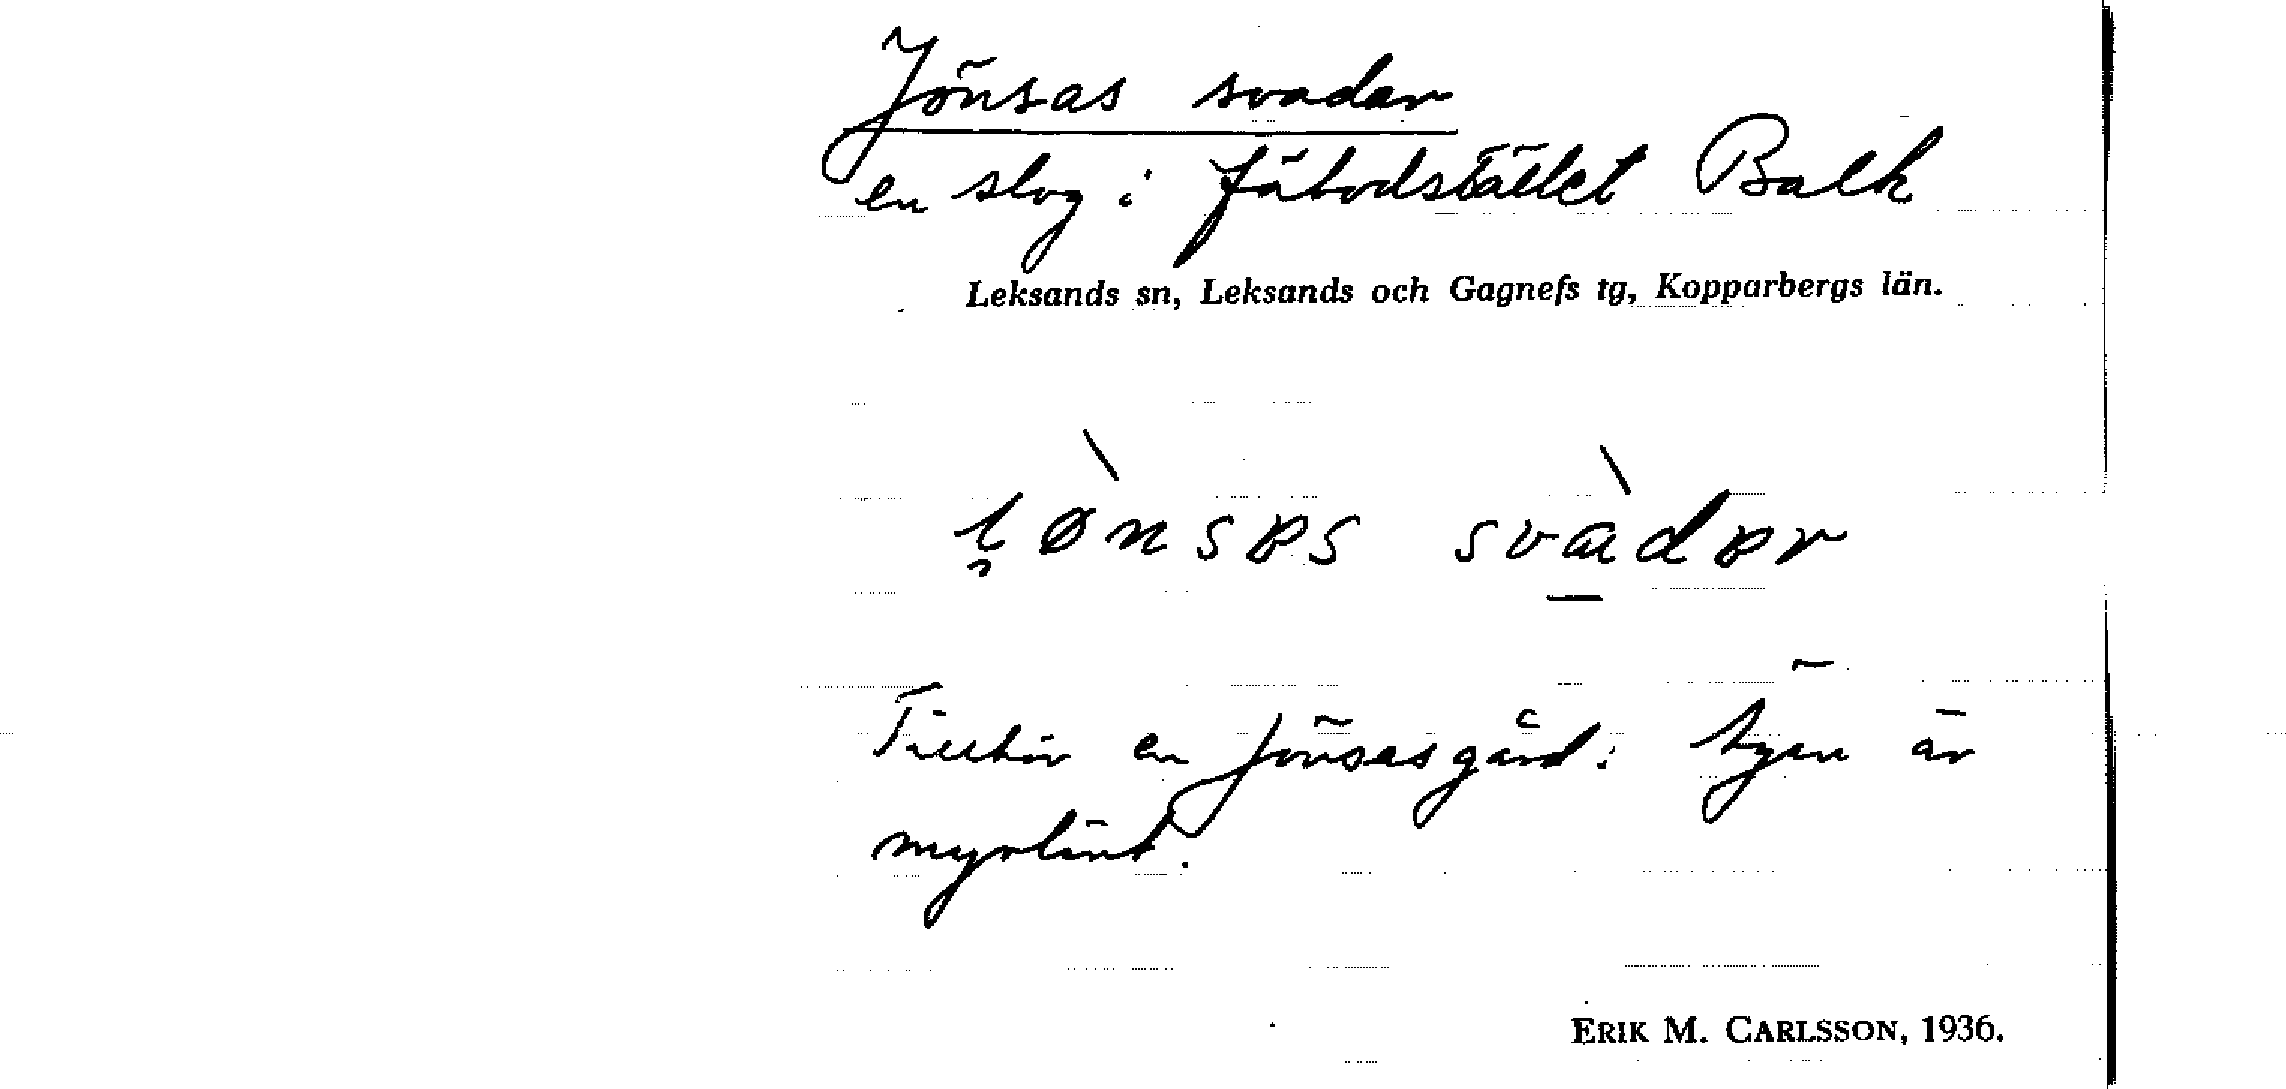 Jönsas svadar
en slog i fäbodstället Balk
Leksands sn, Leksands och Gagnefs tg, Kopparbergs län.
svadɐr
Tillhör en Jönsasgård: tyen är
myrlänt.
ERIK M. CARLSSON, 1936.